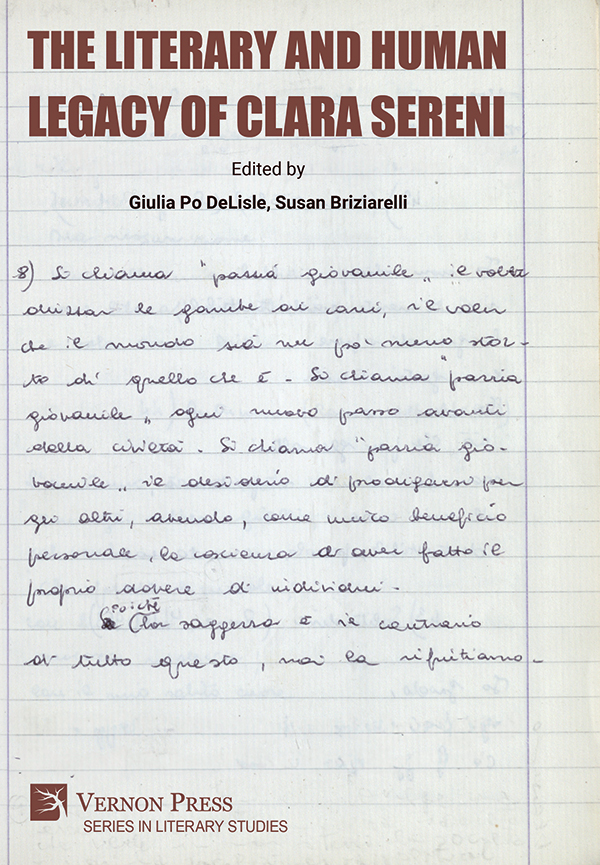 THE LITERARY AND HUMAN
LEGACY OF CLARA SERENI
Edited by
Giulia Po DeLisle, Susan Briziarelli
8) Si chiama "pazzia giovanile" il voler
drizzar le gambe ai cani, il voler
che il mondo sia un po' meno stor-
to di quello che è - Si chiama "pazzia
giovanile" ogni nuovo passo avanti
della civiltà. Si chiama "pazzia gio-
vanile" il desiderio di prodigarsi per
gli altri, avendo, come unico beneficio
personale, la coscienza di aver fatto il
proprio dovere di individui -
Poiché la saggezza è il contrario
di tutto questo, noi la rifiutiamo -
VERNON PRESS
SERIES IN LITERARY STUDIES